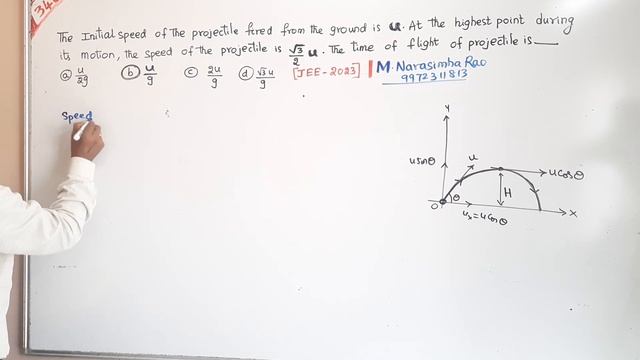 346
The Initial speed of the projectile fired from the ground is u. At the highest point during
its motion, the speed of the projectile is √3/2 u. The time of flight of projectile is ___
ⓐ u/2g ⓑ u/g ⓒ 2u/g ⓓ √3u/g [JEE-2023] M. Narasimha Rao
9972311813
Speed
Y
u sinθ
u
u cosθ
H
θ
O
uₓ = u cosθ
X